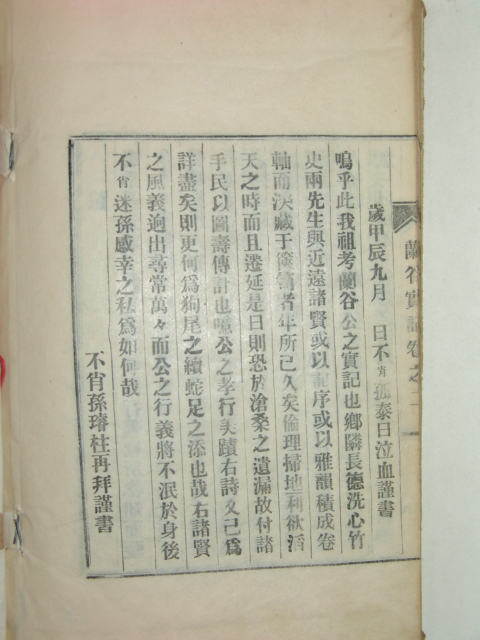 蘭谷實記卷之二
歲甲辰九月 日不肖孤泰日泣血謹書
嗚乎此我祖考蘭谷公之實記也鄕隣長德洗心竹
史兩先生與近遠諸賢或以記序或以雅韻積成卷
軸而深藏于篋笥者年所已久矣倫理掃地利欲滔
天之時而且遷延是日則恐於滄桑之遺漏故付諸
手民以圖壽傳計也噫公之孝行美蹟右詩文已爲
詳盡矣則更何爲狗尾之續蛇足之添也哉右諸賢
之風義逈出尋常萬々而公之行義將不泯於身後
不肖迷孫感幸之私爲如何哉
不肖孫璿柱再拜謹書